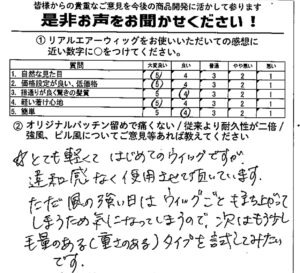 皆様からの貴重なご意見を今後の商品開発に活かして参ります
是非お声をお聞かせください！
① リアルエアーウィッグをお使いいただいての感想に
近い数字に○をつけてください。
質問 大変良い 良い 普通 やや悪い 悪い
1. 自然な見た目 5 4 3 2 1
2. 価格設定が良い、低価格 5 4 3 2 1
3. 指通りが良く驚きの髪質 5 4 3 2 1
4. 軽い着け心地 5 4 3 2 1
5. 簡単 5 4 3 2 1
② オリジナルパッチン留めで痛くない/従来より耐久性が二倍/
強風、ビル風についてご意見等あれば教えてください
とても軽くて はじめてのウィッグですが、
違和感なく使用させて頂いています。
ただ 風の強い日は ウィッグごともち上がって
しまうため気になってしまうので、次はもう少し
毛量のある(重さのある)タイプを試してみたい
です。